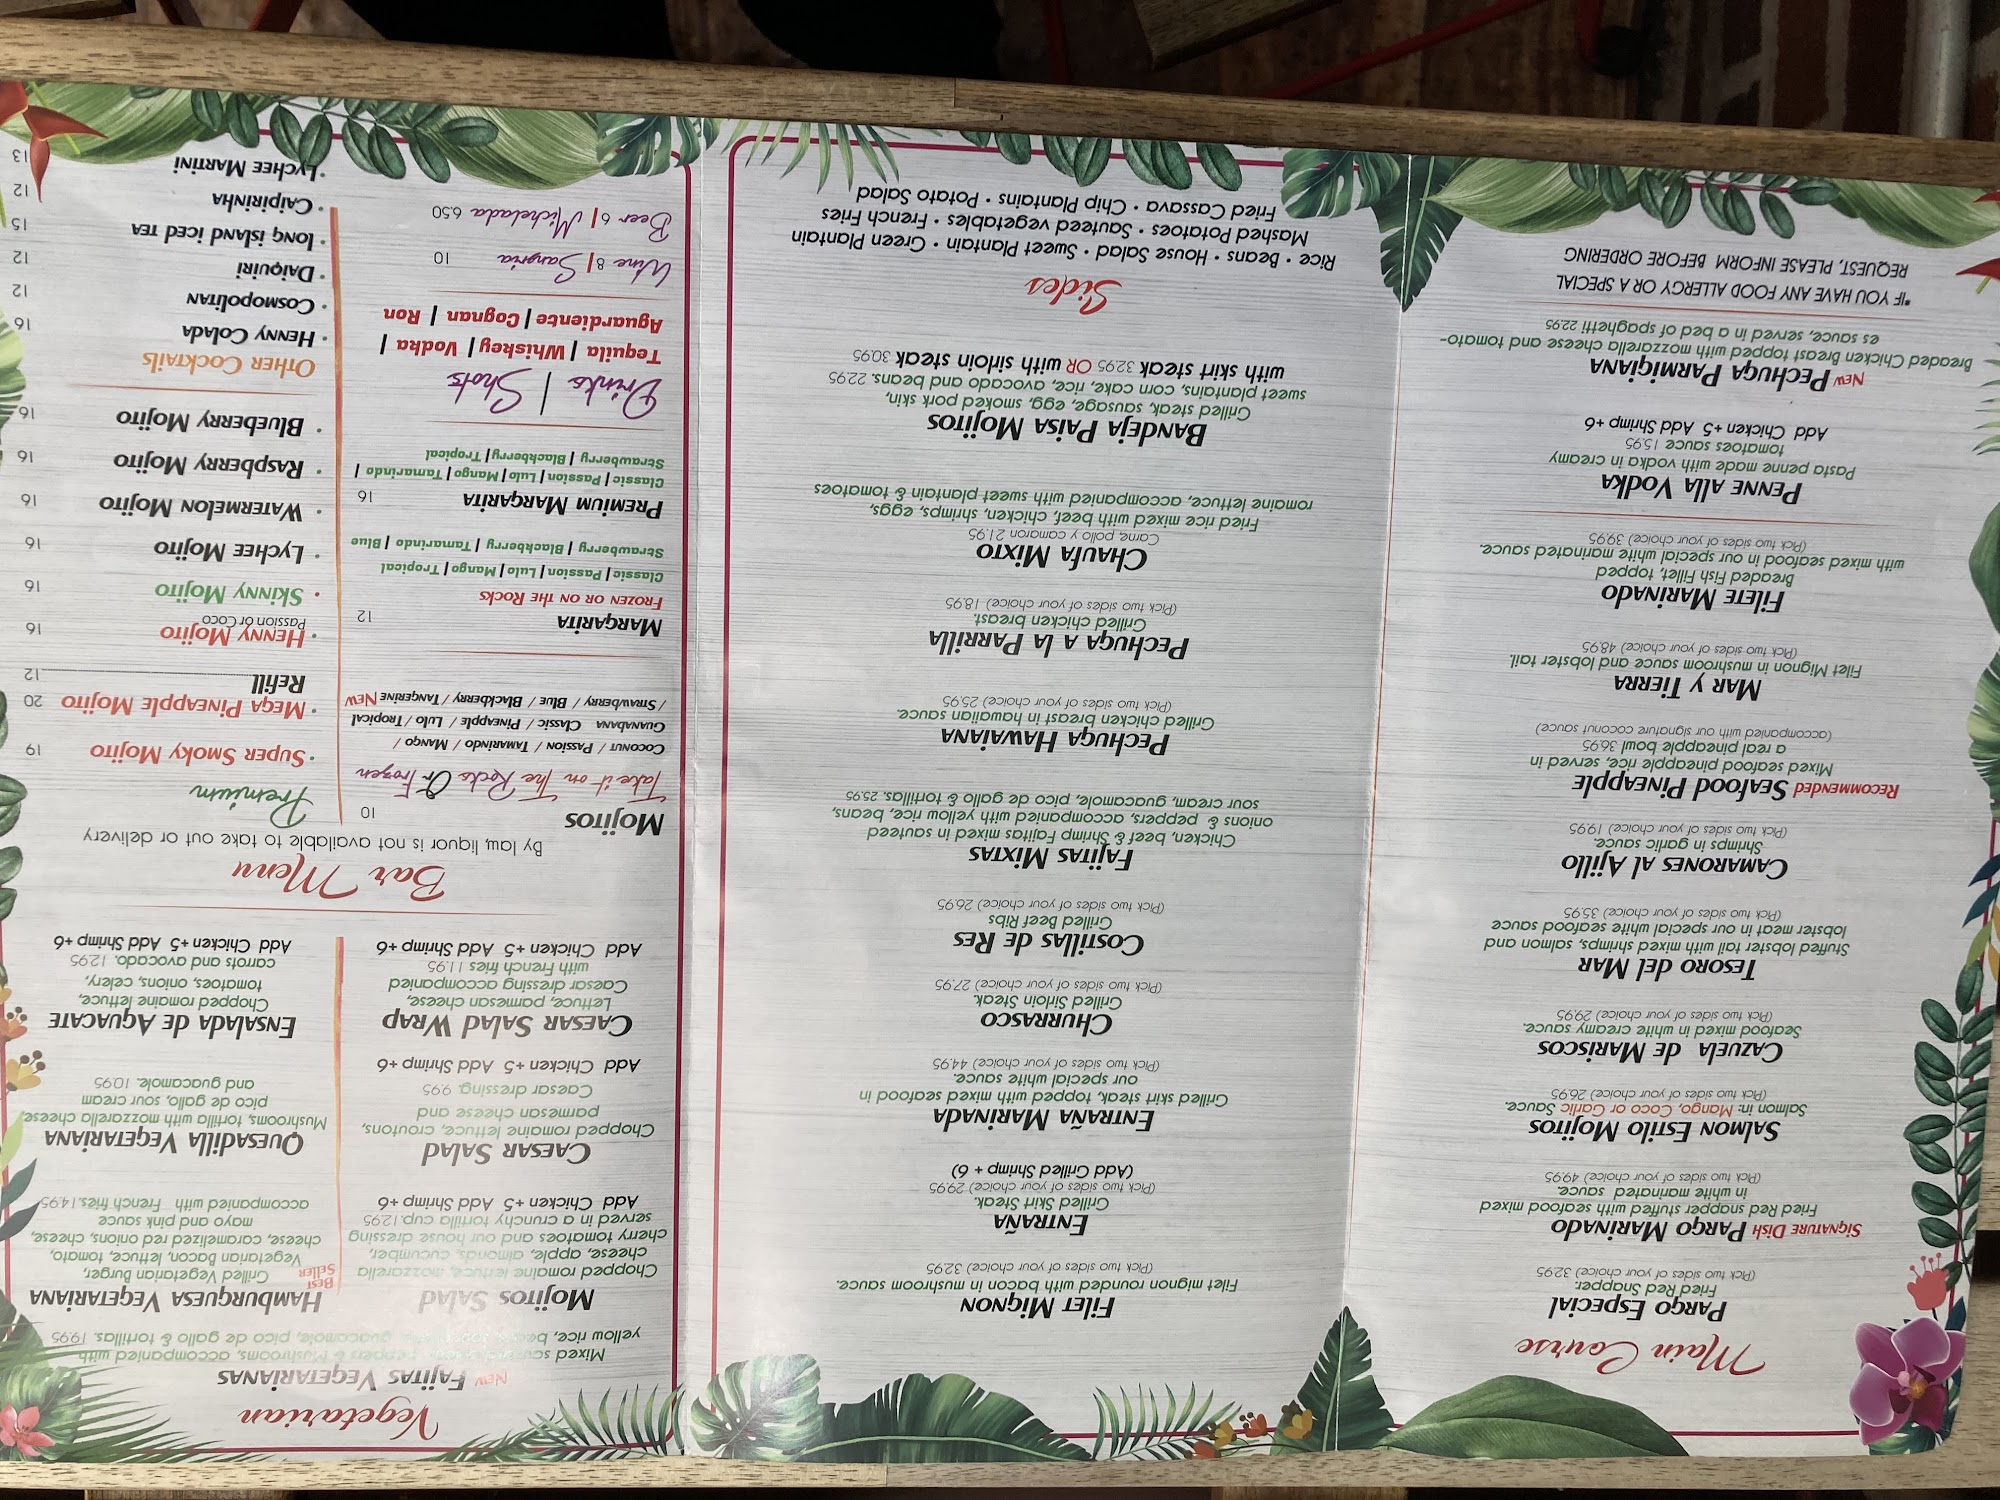 Main Course
PARGO ESPECIAL
Fried Red Snapper.
(Pick two of your sides of choice) 32.95
SIGNATURE DISH PARGO MARINADO
Fried Red snapper stuffed with seafood mixed
in white marinated sauce.
(Pick two of your sides of choice) 49.95
SALMON ESTILO MOJITOS
Salmon in: Mango, Coco or Garlic Sauce.
(Pick two of your sides of choice) 26.95
CAZUELA DE MARISCOS
Seafood mixed in white creamy sauce.
(Pick two of your sides of choice) 29.95
TESORO DEL MAR
Stuffed lobster tail with mixed shrimps, salmon and
lobster meat in our special white seafood sauce
(Pick two of your sides of choice) 35.95
CAMARONES AL AJILLO
Shrimps in garlic sauce.
(Pick two of your sides of choice) 19.95
RECOMMENDED SEAFOOD PINEAPPLE
Mixed seafood pineapple rice, served in
a real pineapple bowl 36.95
(accompanied with our signature coconut sauce)
MAR Y TIERRA
Filet Mignon in mushroom sauce and lobster tail.
(Pick two of your sides of choice) 48.95
FILETE MARINADO
Breaded Fish Fillet, topped
with mixed seafood in our special white marinated sauce.
(Pick two of your sides of choice) 39.95
PENNE ALLA VODKA
Pasta penne made with vodka in creamy
tomatoes sauce 15.95
Add Chicken +5 Add Shrimp +6
NEW PECHUGA PARMIGIANA
Breaded Chicken Breast topped with mozzarella cheese and tomato-
es sauce, served in a bed of spaghetti 22.95
*IF YOU HAVE ANY FOOD ALLERGY OR A SPECIAL
REQUEST, PLEASE INFORM BEFORE ORDERING
FILET MIGNON
Filet mignon rounded with bacon in mushroom sauce.
(Pick two of your sides of choice) 32.95
ENTRAÑA
Grilled Skirt Steak.
(Pick two of your sides of choice) 29.95
(Add Grilled Shrimp + 6)
ENTRAÑA MARINADA
Grilled skirt steak, topped with mixed seafood in
our special white sauce.
(Pick two of your sides of choice) 44.95
CHURRASCO
Grilled Sirloin Steak.
(Pick two of your sides of choice) 27.95
COSTILLAS DE RES
Grilled Beef Ribs
(Pick two of your sides of choice) 26.95
FAJITAS MIXTAS
Chicken, beef & Shrimp Fajitas mixed in sauteed
onions & peppers, accompanied with yellow rice, beans,
sour cream, guacamole, pico de gallo & tortillas. 25.95
PECHUGA HAWAIANA
Grilled chicken breast in hawaiian sauce.
(Pick two of your sides of choice) 25.95
PECHUGA A LA PARRILLA
Grilled chicken breast.
(Pick two of your sides of choice) 18.95
CHAUFA MIXTO
Carne, pollo y camaron 21.95
Fried rice mixed with beef, chicken, shrimps, eggs,
romaine lettuce, accompanied with sweet plantain & tomatoes
BANDEJA PAISA MOJITOS
Grilled steak, sausage, egg, smoked pork skin,
sweet plantains, corn cake, rice, avocado and beans. 22.95
with skirt steak 32.95 OR with sirloin steak 30.95
Sides
Rice • Beans • House Salad • Sweet Plantain • Green Plantain
Mashed Potatoes • Sauteed vegetables • French Fries
Fried Cassava • Chip Plantains • Potato Salad
Vegetarian
NEW FAJITAS VEGETARIANAS
Mixed peppers & Mushrooms, accompanied with
yellow rice, guacamole, pico de gallo & tortillas. 19.95
MOJITOS SALAD
Chopped romaine lettuce, mozzarella
cheese, apple, almonds, cucumber,
cherry tomatoes and our house dressing
served in a crunchy tortilla cup. 12.95
Add Chicken +5 Add Shrimp +6
CAESAR SALAD
Chopped romaine lettuce, croutons,
parmesan cheese and
Caesar dressing. 9.95
Add Chicken +5 Add Shrimp +6
CAESAR SALAD WRAP
Lettuce, parmesan cheese,
Caesar dressing accompanied
with French fries 11.95
Add Chicken +5 Add Shrimp +6
HAMBURGUESA VEGETARIANA
BEST SELLER
Grilled Vegetarian Burger,
Vegetarian Bacon, lettuce, tomato,
cheese, caramelized red onions, cheese,
mayo and pink sauce
accompanied with French fries. 14.95
QUESADILLA VEGETARIANA
Mushrooms, tortilla with mozzarella cheese,
pico de, gallo, sour cream
and guacamole. 10.95
ENSALADA DE AGUACATE
Chopped romaine lettuce,
tomatoes, onions, celery,
carrots and avocado. 12.95
Add Chicken +5 Add Shrimp +6
Bar Menu
By law, liquor is not available to take out or delivery
MOJITOS 10
Take it on The Rocks Or Frozen
COCONUT / PASSION / TAMARINDO / MANGO /
GUANABANA CLASSIC / PINEAPPLE / LULO / TROPICAL
/ STRAWBERRY / BLUE / BLACKBERRY / TANGERINE NEW
MARGARITA 12
FROZEN OR ON THE ROCKS
Classic | Passion | Lulo | Mango | Tropical
Strawberry | Blackberry | Tamarindo | Blue
PREMIUM MARGARITA 16
Classic | Passion | Lulo | Mango | Tamarindo |
Strawberry | Blackberry | Tropical
Drinks | Shots
Tequila | Whiskey | Vodka |
Aguardiente | Cognan | Ron
Wine 8 | Sangria 10
Beer 6 | Michelada 6.50
Premium
• SUPER SMOKY MOJITO 19
• MEGA PINEAPPLE MOJITO 20
REFILL 12
• HENNY MOJITO 16
Passion or Coco
• SKINNY MOJITO 16
• LYCHEE MOJITO 16
• WATERMELON MOJITO 16
• RASPBERRY MOJITO 16
• BLUEBERRY MOJITO 16
OTHER COCKTAILS
• HENNY COLADA 16
• COSMOPOLITAN 12
• DAIQUIRI 12
• LONG ISLAND ICED TEA 15
• CAIPIRINHA 12
• LYCHEE MARTINI 13